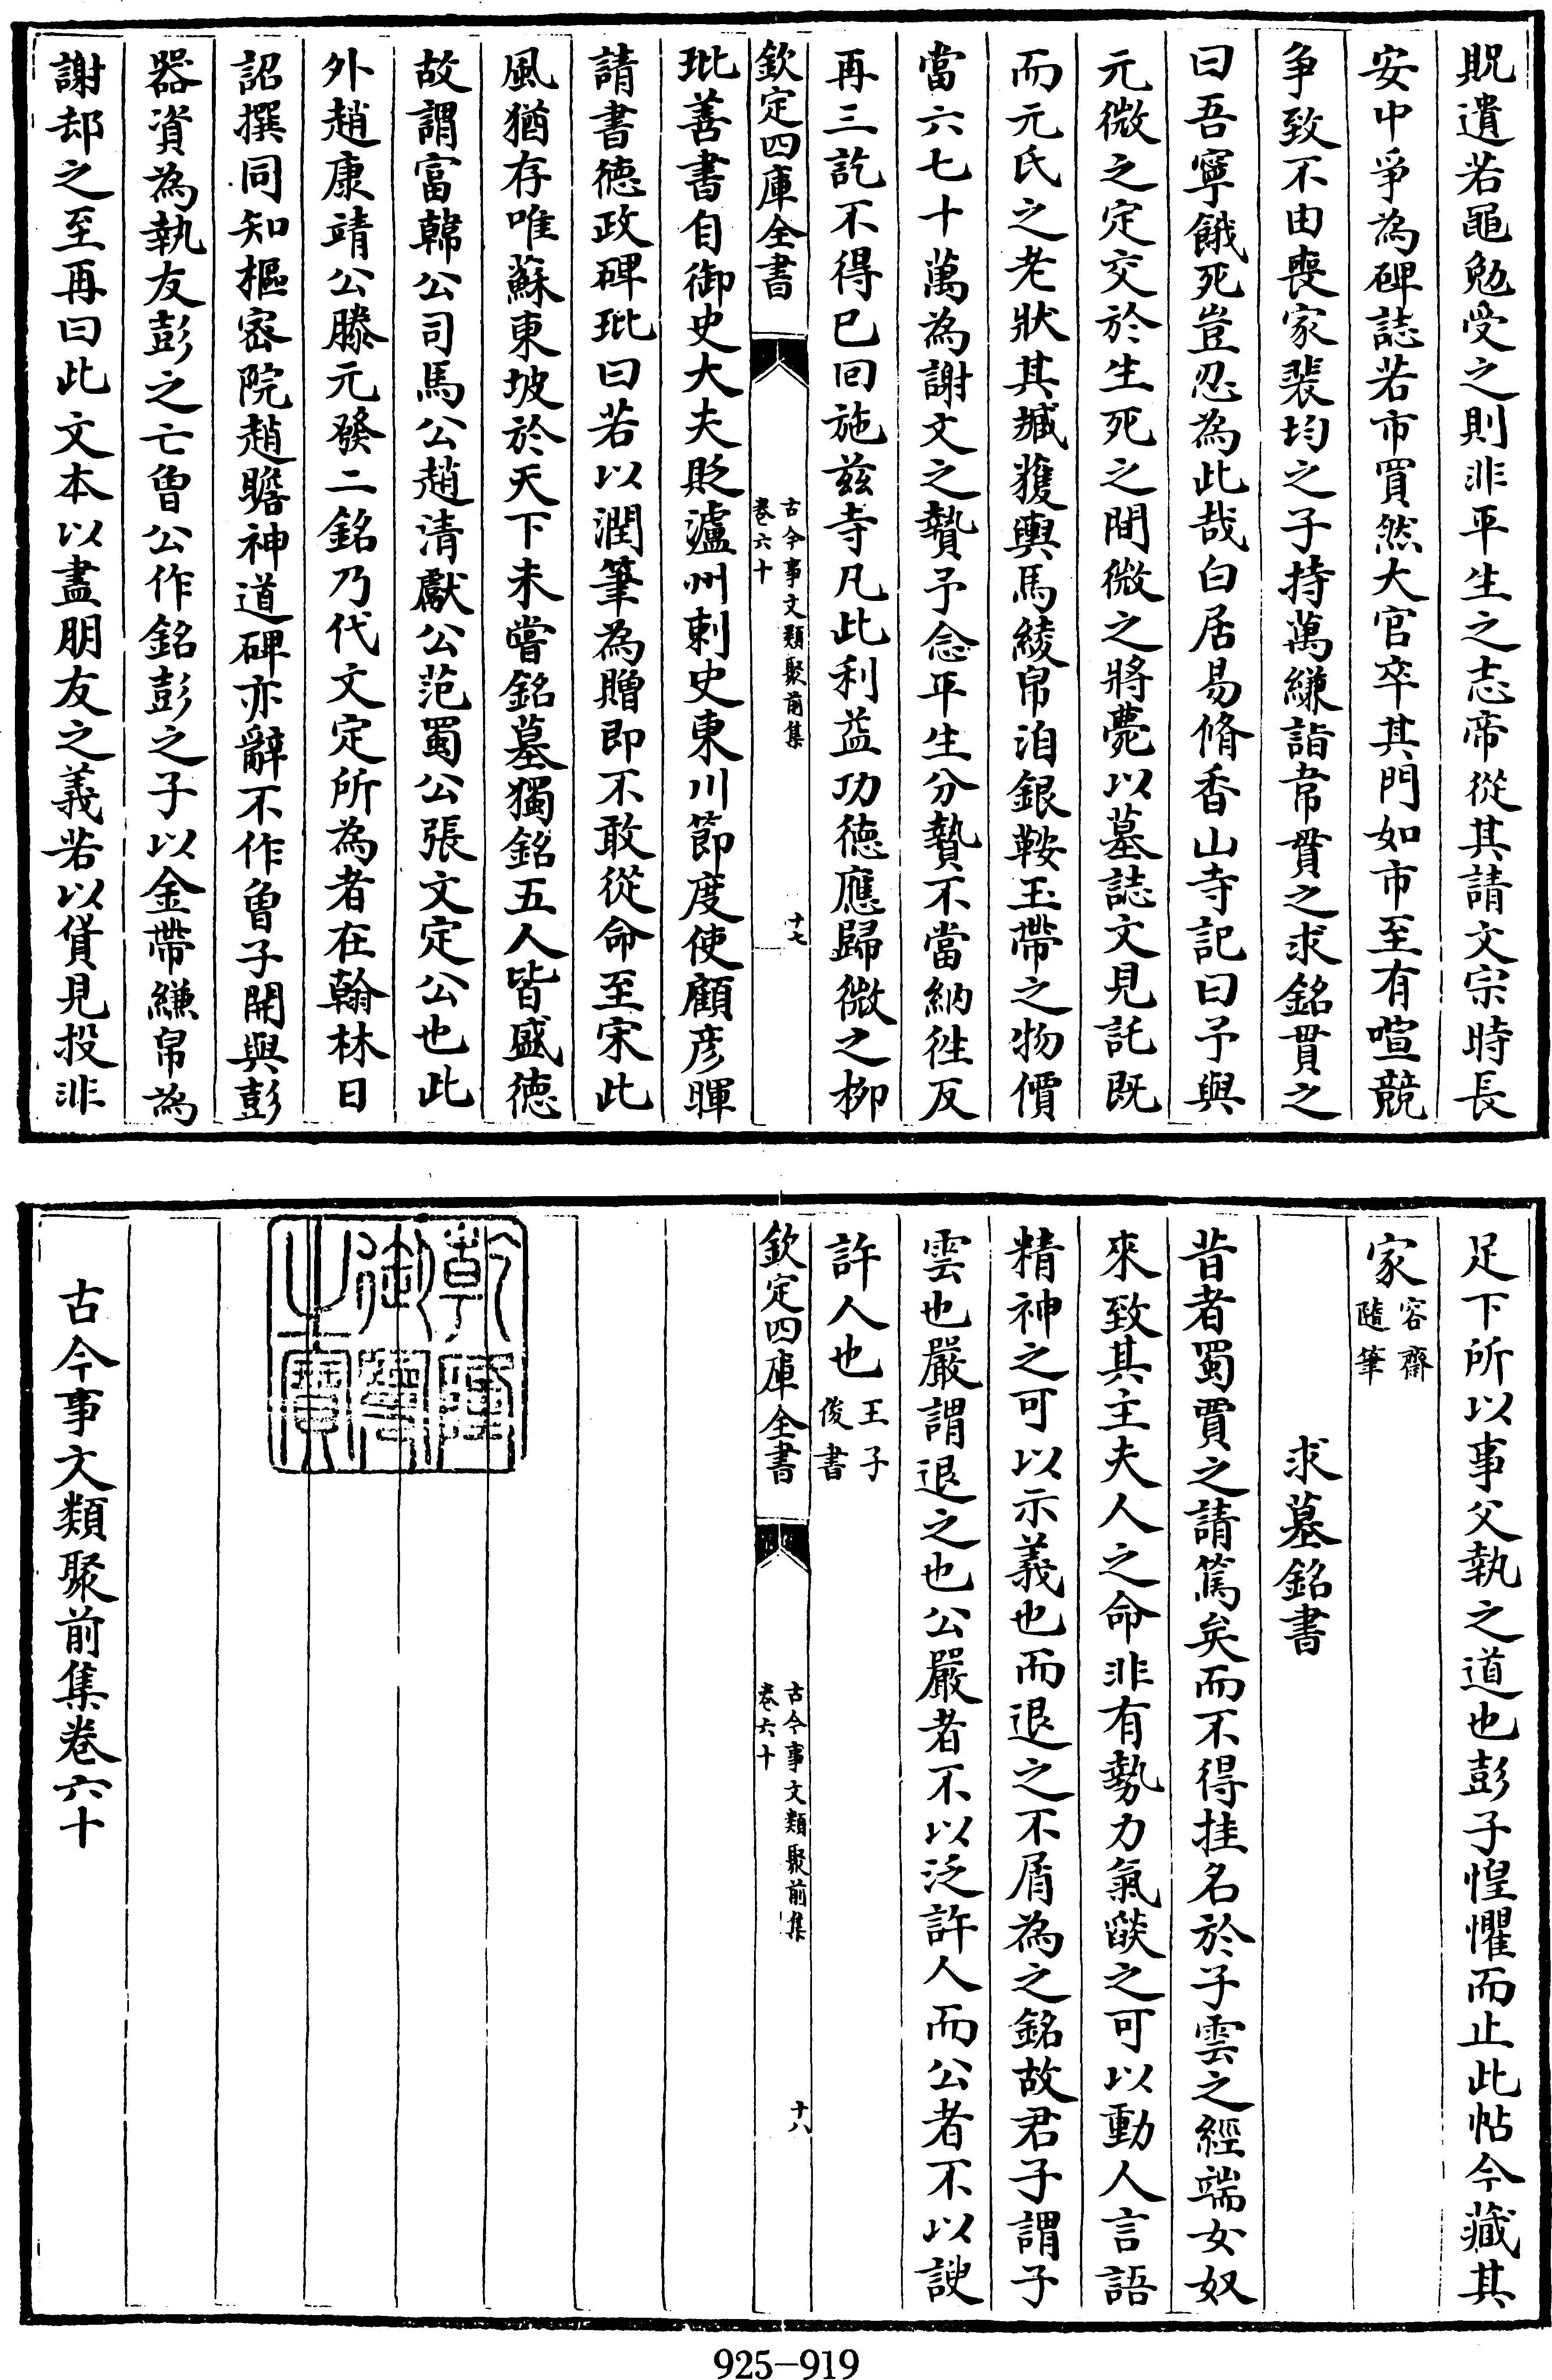 貺遺若黽勉受之則非平生之志帝從其請文宗時長
安中爭為碑誌若市買然大官卒其門如市至有喧競
争致不由喪家裴均之子持萬縑詣韋貫之求銘貫之
曰吾寧餓死豈忍為此哉白居易脩香山寺記曰予與
元微之定交於生死之間微之將薨以墓誌文見託既
而元氏之老狀其臧獲輿馬綾帛洎銀鞍玉帶之物價
當六七十萬為謝文之贄予念平生分贄不當納往反
再三訖不得已回施兹寺凡此利益功德應歸微之柳
欽定四庫全書
古今事文類聚前集
卷六十
十七
玭善書自御史大夫貶瀘州刺史東川節度使顧彦暉
請書德政碑玭曰若以潤筆為贈即不敢從命至宋此
風猶存唯蘇東坡於天下未嘗銘墓獨銘五人皆盛德
故謂富韓公司馬公趙清獻公范蜀公張文定公也此
外趙康靖公滕元發二銘乃代文定所為者在翰林日
詔撰同知樞密院趙瞻神道碑亦辭不作曽子開與彭
器資為執友彭之亡曽公作銘彭之子以金帶縑帛為
謝却之至再曰此文本以盡朋友之義若以貨見投非
足下所以事父執之道也彭子惶懼而止此帖今藏其
家容齋
隨筆
求墓銘書
昔者蜀賈之請篤矣而不得挂名於子雲之經端女奴
來致其主夫人之命非有勢力氣燄之可以動人言語
精神之可以示義也而退之不屑為之銘故君子謂子
雲也嚴謂退之也公嚴者不以泛許人而公者不以諛
許人也王子
俊書
欽定四庫全書
古今事文類聚前集
卷六十
十八
乾隆
御覽
之寶
古今事文類聚前集卷六十
925-919